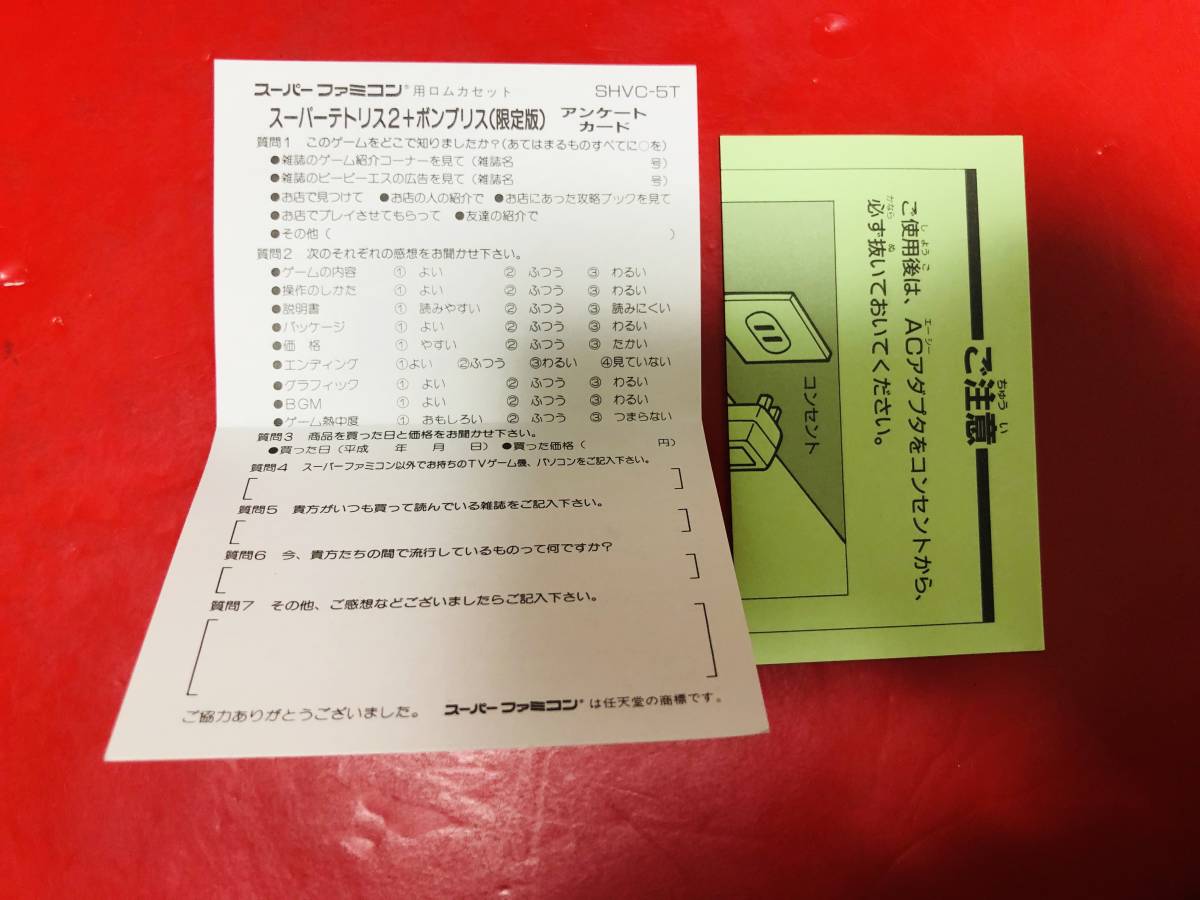 スーパーファミコン®用ロムカセット　SHVC-5T
スーパーテトリス2+ボンブリス(限定版)　アンケートカード
質問1　このゲームをどこで知りましたか?(あてはまるものすべてに○を)
●雑誌のゲーム紹介コーナーを見て(雑誌名　　　号)
●雑誌のビーピーエスの広告を見て(雑誌名　　　号)
●お店で見つけて　●お店の人の紹介で　●お店にあった攻略ブックを見て
●お店でプレイさせてもらって　●友達の紹介で
●その他(　　　)
質問2　次のそれぞれの感想をお聞かせ下さい。
●ゲームの内容　①　よい　②　ふつう　③　わるい
●操作のしかた　①　よい　②　ふつう　③　わるい
●説明書　①　読みやすい　②　ふつう　③　読みにくい
●パッケージ　①　よい　②　ふつう　③　わるい
●価　格　①　やすい　②　ふつう　③　たかい
●エンディング　①よい　②ふつう　③わるい　④見ていない
●グラフィック　①　よい　②　ふつう　③　わるい
●BGM　①　よい　②　ふつう　③　わるい
●ゲーム熱中度　①　おもしろい　②　ふつう　③　つまらない
質問3　商品を買った日と価格をお聞かせ下さい。
●買った日(平成　年　月　日)　●買った価格(　　　円)
質問4　スーパーファミコン以外でお持ちのTVゲーム機、パソコンをご記入下さい。
質問5　貴方がいつも買って読んでいる雑誌をご記入下さい。
質問6　今、貴方たちの間で流行しているものって何ですか?
質問7　その他、ご感想などございましたらご記入下さい。
ご協力ありがとうございました。　スーパーファミコン®は任天堂の商標です。
ちゅう い
ご注意
し よう ご
ご使用後は、ACアダプタをコンセントから、
エー シー
かなら ぬ
必ず抜いておいてください。
コンセント